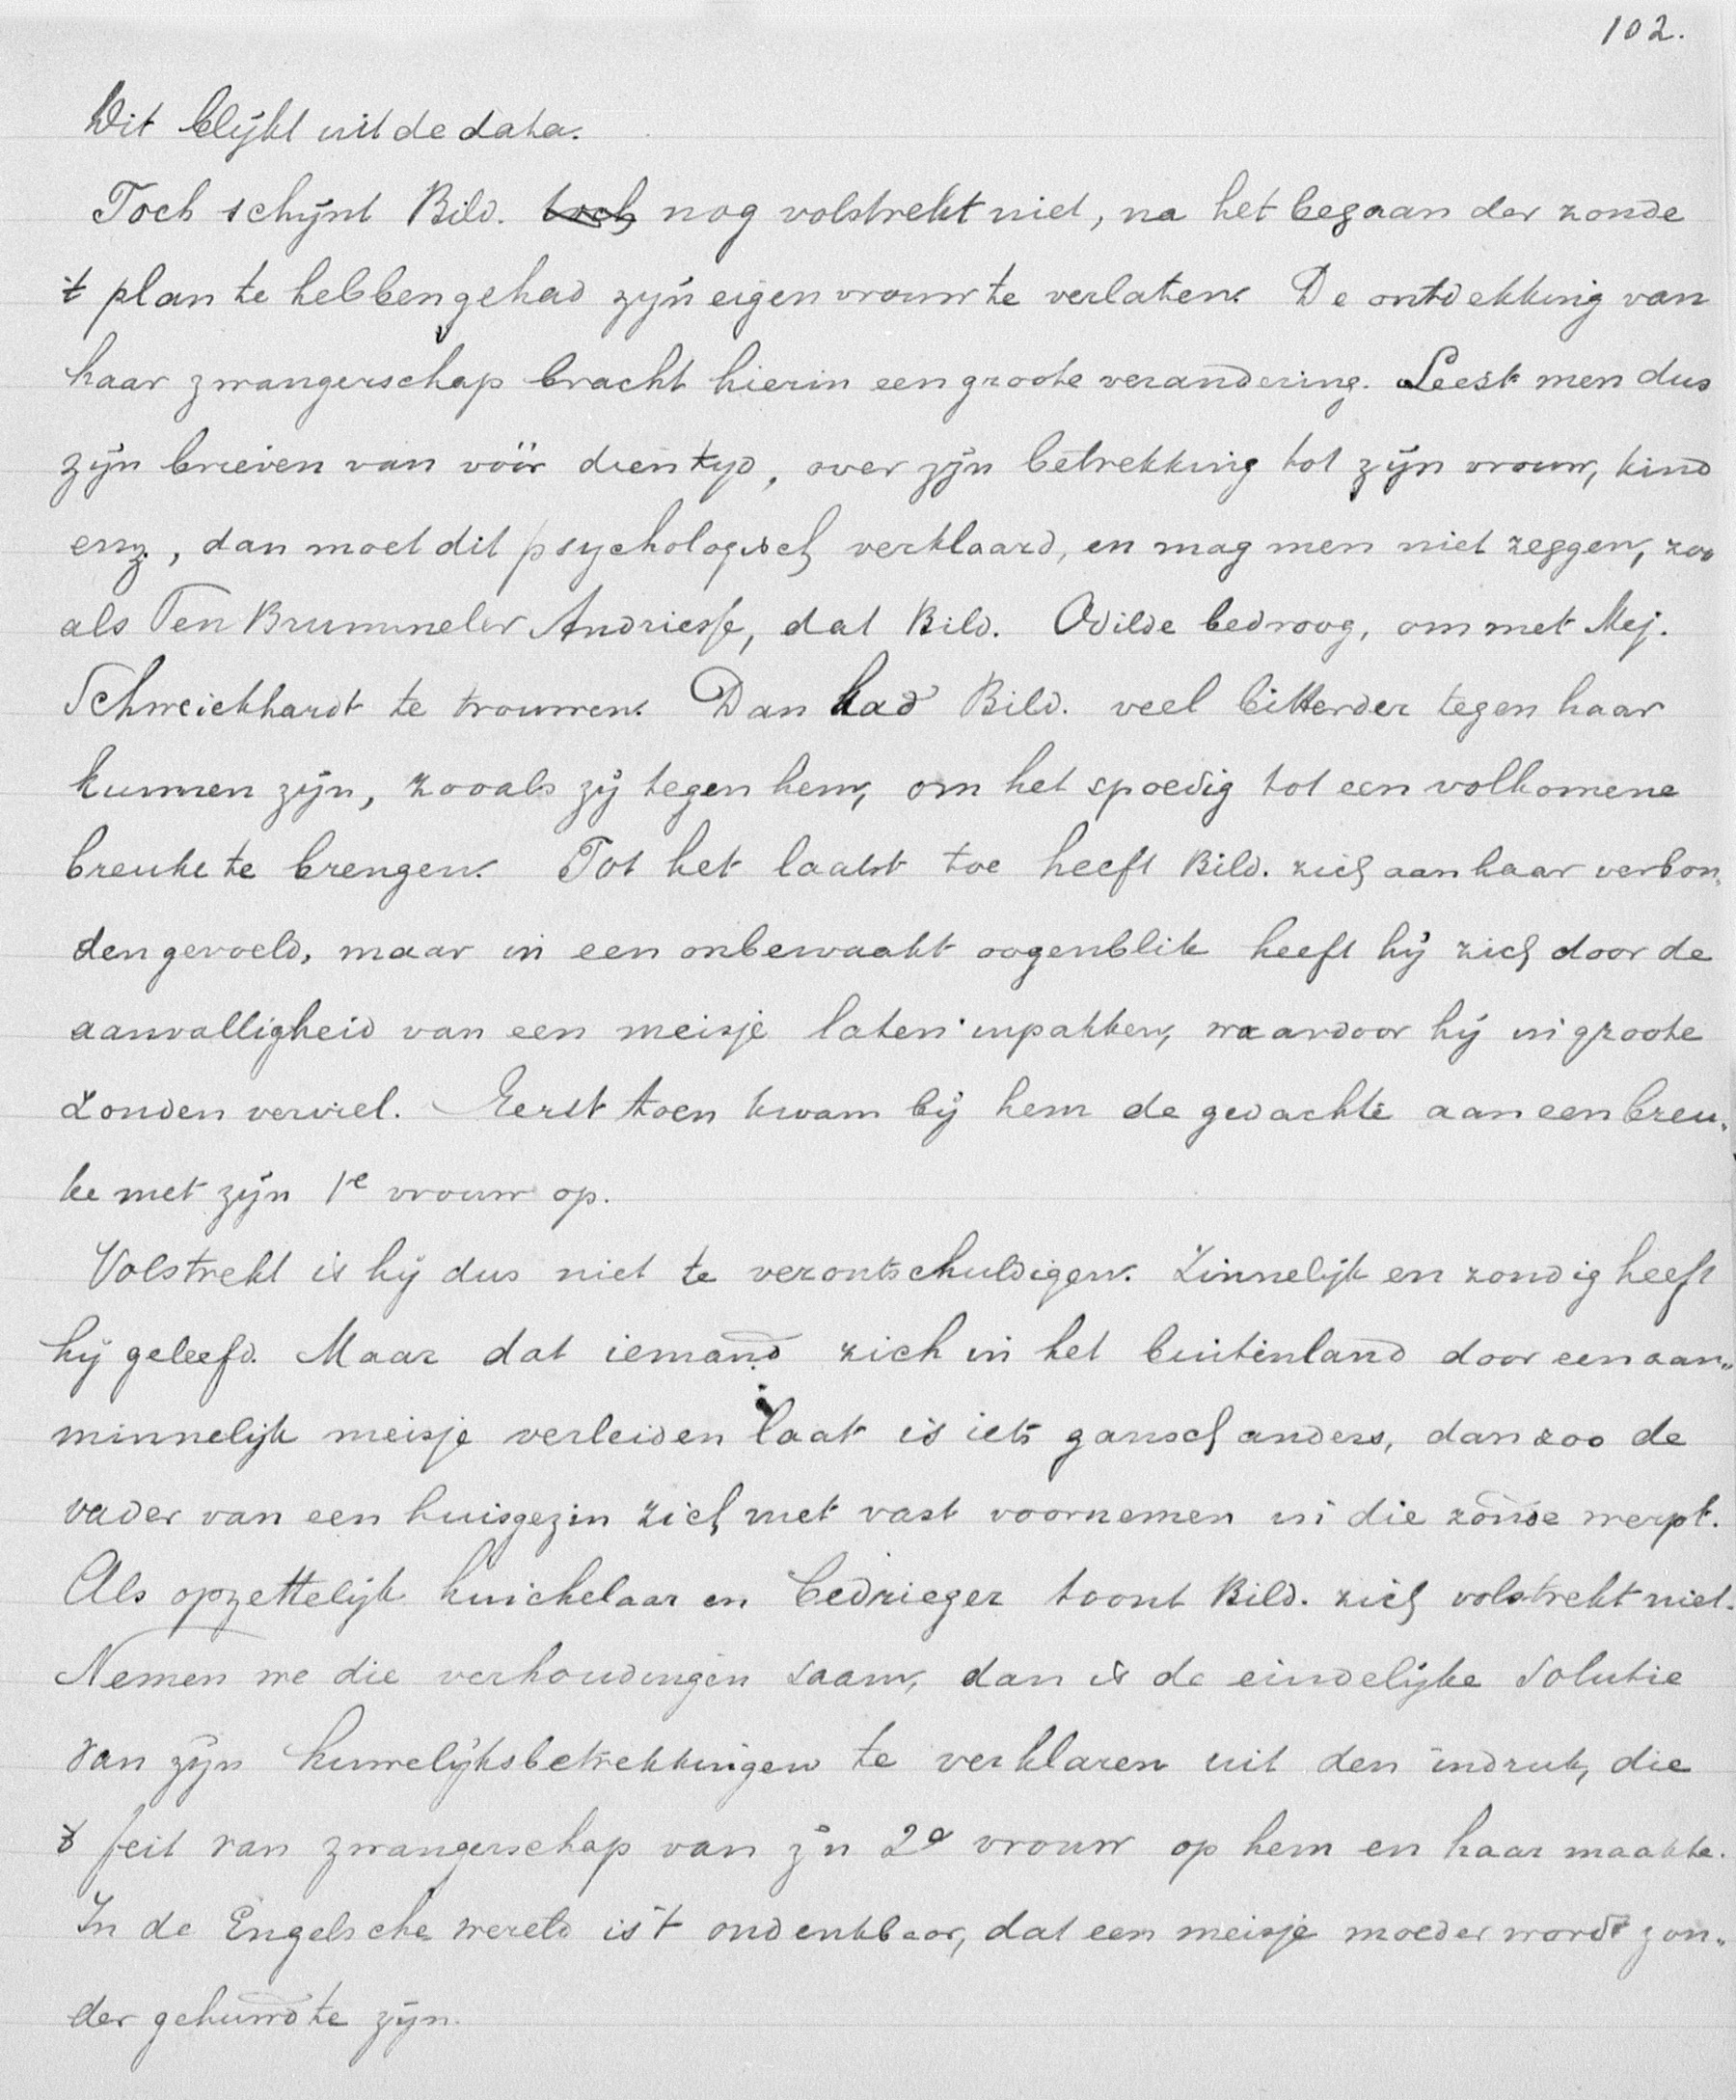 102.
Dit blijkt uit de data.
Toch schijnt Bild. toch nog volstrekt niet, na het begaan der zonde
't plan te hebben gehad zijn eigen vrouw te verlaten. De ontdekking van
haar zwangerschap bracht hierin een groote verandering. Leest men dus
zijn brieven van vóór dien tijd, over zijn betrekking tot zijn vrouw, kind
enz., dan moet dit psychologisch verklaard, en mag men niet zeggen, zoo
als Ten Brummeler Andriesse, dat Bild. Odilde bedroog, om met Mej.
Schweickhardt te trouwen. Dan had Bild. veel bitterder tegen haar
kunnen zijn, zooals zij tegen hem, om het spoedig tot een volkomene
breuke te brengen. Tot het laatst toe heeft Bild. zich aan haar verbon„
den gevoeld, maar in een onbewaakt oogenblik heeft hij zich door de
aanvalligheid van een meisje laten inpakken, waardoor hij in groote
zonden verviel. Eerst toen kwam bij hem de gedachte aan een breu„
ke met zijn 1e vrouw op.
Volstrekt is hij dus niet te verontschuldigen. Zinnelijk en zondig heeft
hij geleefd. Maar dat iemand zich in het buitenland door een aan„
minnelijk meisje verleiden laat is iets gansch anders, dan zoo de
vader van een huisgezin zich met vast voornemen in die zonde werpt.
Als opzettelijk huichelaar en bedrieger toont Bild. zich volstrekt niet.
Nemen we die verhoudingen saam, dan is de eindelijke solutie
van zijn huwelijksbetrekkingen te verklaren uit den indruk, die
't feit van zwangerschap van z'n 2e vrouw op hem en haar maakte.
In de Engelsche wereld is 't ondenkbaar, dat een meisje moeder wordt zon„
der gehuwd te zijn.